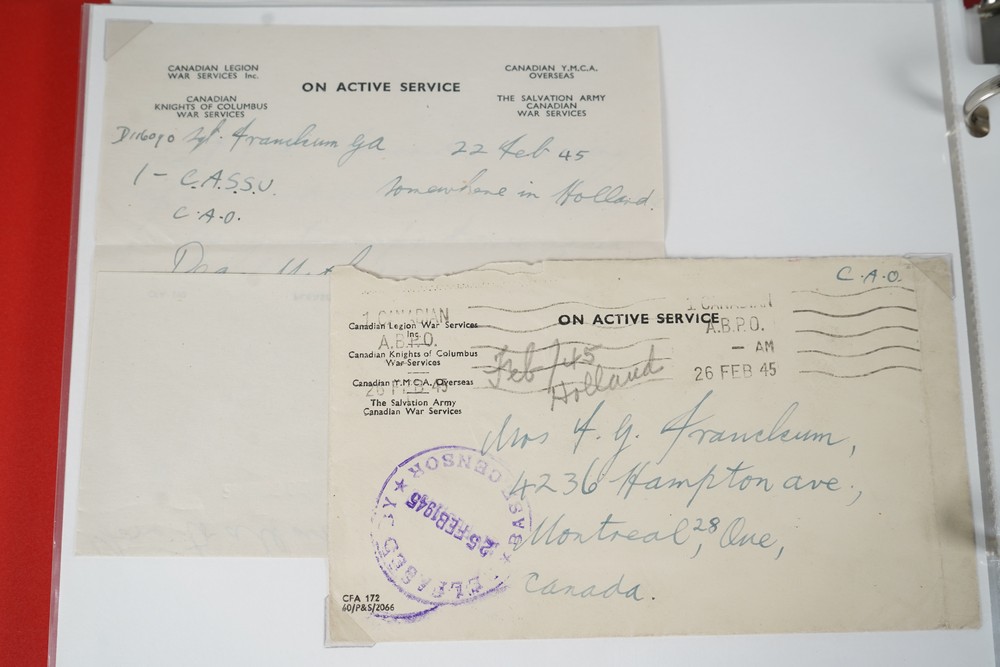 CANADIAN LEGION
WAR SERVICES Inc.
CANADIAN
KNIGHTS OF COLUMBUS
WAR SERVICES
ON ACTIVE SERVICE
CANADIAN Y.M.C.A.
OVERSEAS
THE SALVATION ARMY
CANADIAN
WAR SERVICES
D116090 Sgt. Franckum GA
22 Feb 45
1 - C.A.S.S.U.
Somewhere in Holland.
C.A.O.
C.A.O.
ON ACTIVE SERVICE
Canadian Legion War Services
Inc.
Canadian Knights of Columbus
War Services
Canadian Y.M.C.A. Overseas
The Salvation Army
Canadian War Services
1 CANADIAN
A.B.P.O.
26 FEB 45
1 CANADIAN
A.B.P.O.
— AM
26 FEB 45
Feb/45
Holland
Mrs F. G. Franckum,
4236 Hampton ave,
Montreal, 28, Que,
Canada.
BASE CENSOR
25 FEB 1945
CFA 172
60/P&S/2066